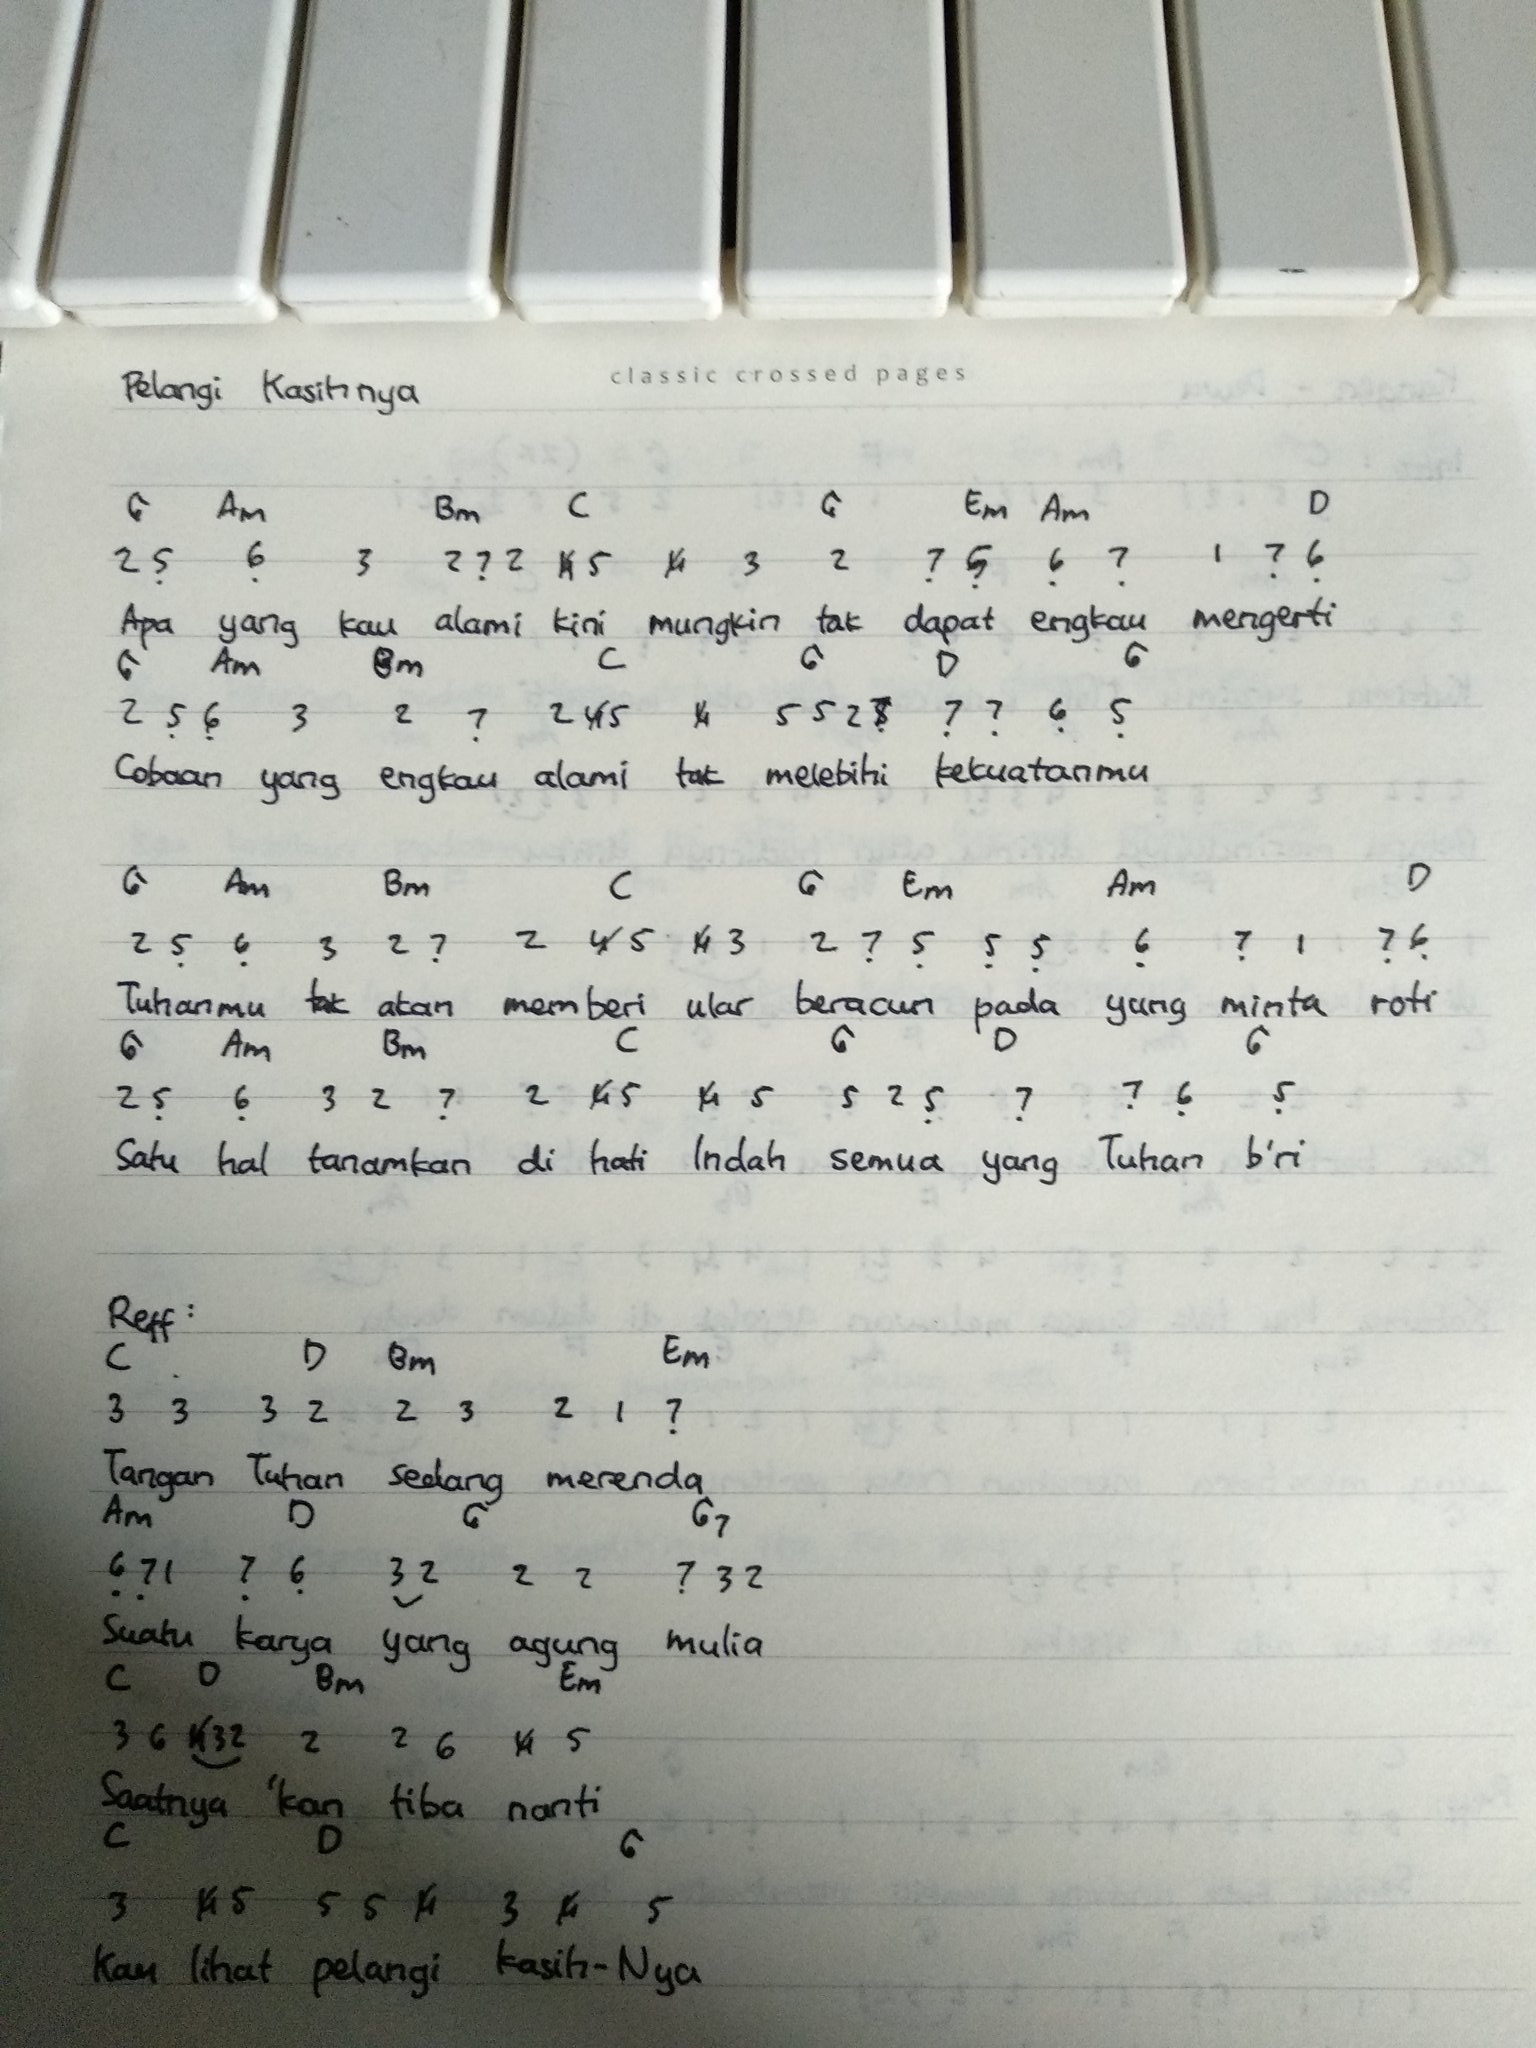 classic crossed pages
Pelangi Kasihnya
G Am Bm C G Em Am D
2 5̣ 6̣ 3 2 7̣ 2 4̸ 5 4̸ 3 2 7̣ 5̣ 6̣ 7̣ 1 7̣ 6̣
Apa yang kau alami kini mungkin tak dapat engkau mengerti
G Am Bm C G D G
2 5̣ 6̣ 3 2 7̣ 2 4̸ 5 4̸ 5 5 2 5̣ 7̣ 7̣ 6̣ 5̣
Cobaan yang engkau alami tak melebihi kekuatanmu
G Am Bm C G Em Am D
2 5̣ 6̣ 3 2 7̣ 2 4̸ 5 4̸ 3 2 7̣ 5̣ 5̣ 5̣ 6̣ 7̣ 1 7̣ 6̣
Tuhanmu tak akan memberi ular beracun pada yang minta roti
G Am Bm C G D G
2 5̣ 6̣ 3 2 7̣ 2 4̸ 5 4̸ 5 5 2 5̣ 7̣ 7̣ 6̣ 5̣
Satu hal tanamkan di hati Indah semua yang Tuhan b'ri
Reff:
C D Bm Em
3 3 3 2 2 3 2 1 7̣
Tangan Tuhan sedang merenda
Am D G G7
6̣ 7̣ 1 7̣ 6̣ 3 2 2 2 7̣ 3 2
Suatu karya yang agung mulia
C D Bm Em
3 6 4̸ 3 2 2 2 6 4̸ 5
Saatnya 'kan tiba nanti
C D G
3 4̸ 5 5 5 4̸ 3 4̸ 5
Kau lihat pelangi kasih-Nya